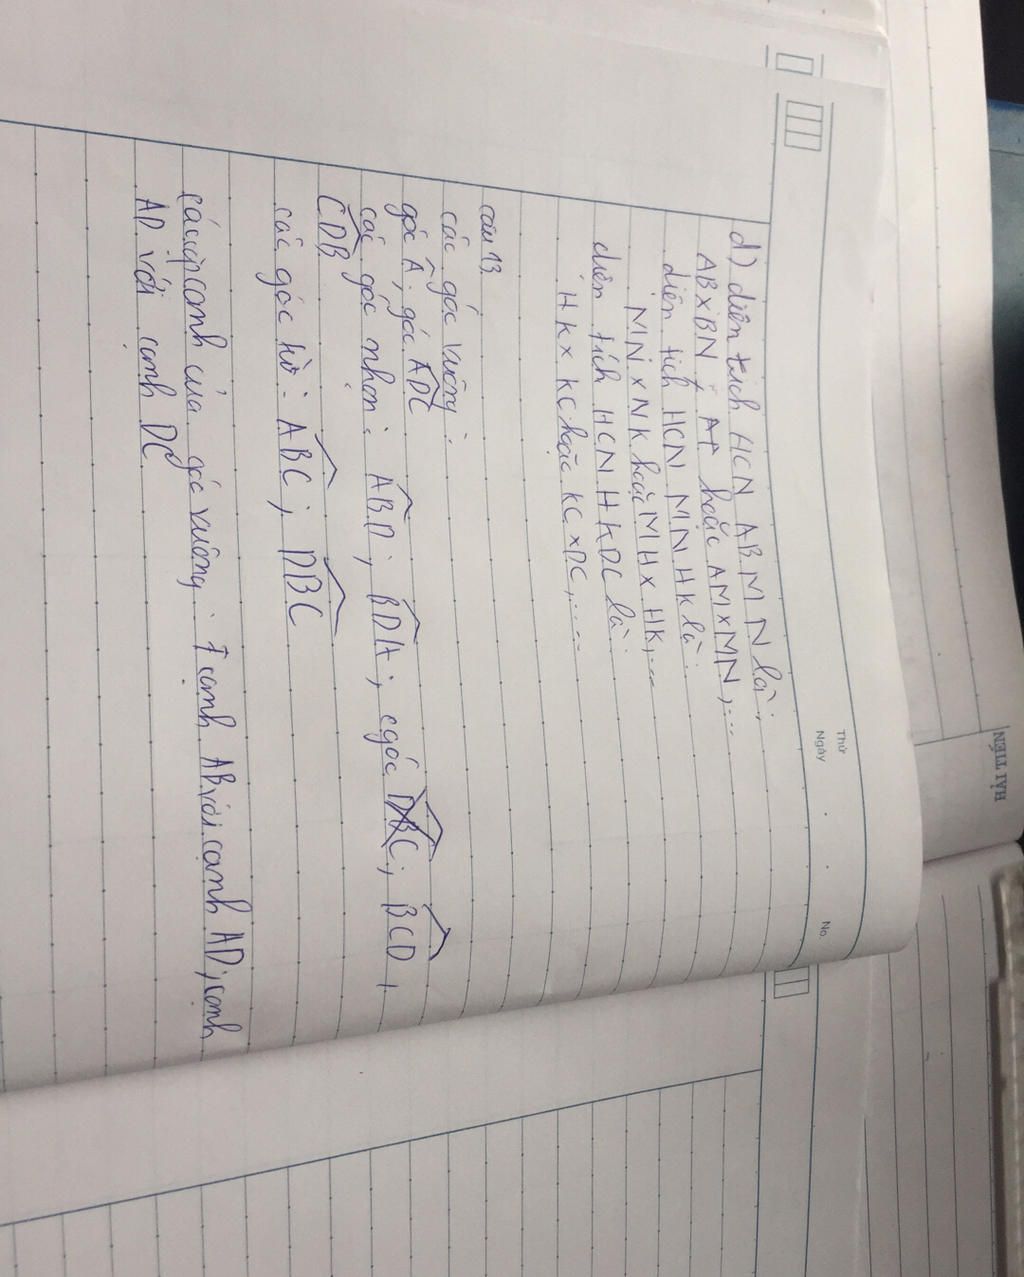 Thứ
Ngày
No.
HẢI TIẾN
d) diện tích HCN ABMN là:
AB x BN hoặc AM x MN, ...
diện tích HCN MNHK là:
MN x NK hoặc MH x HK, ...
diện tích HCN HKDC là:
HK x KC hoặc KC x DC, ...
câu 13
các góc vuông:
góc Â; góc ADC
các góc nhọn: ABD; BDA; góc BCD,
CDB
các góc tù: ABC; DBC
các cặp cạnh của góc vuông: cạnh AB với cạnh AD; cạnh
AD với cạnh DC